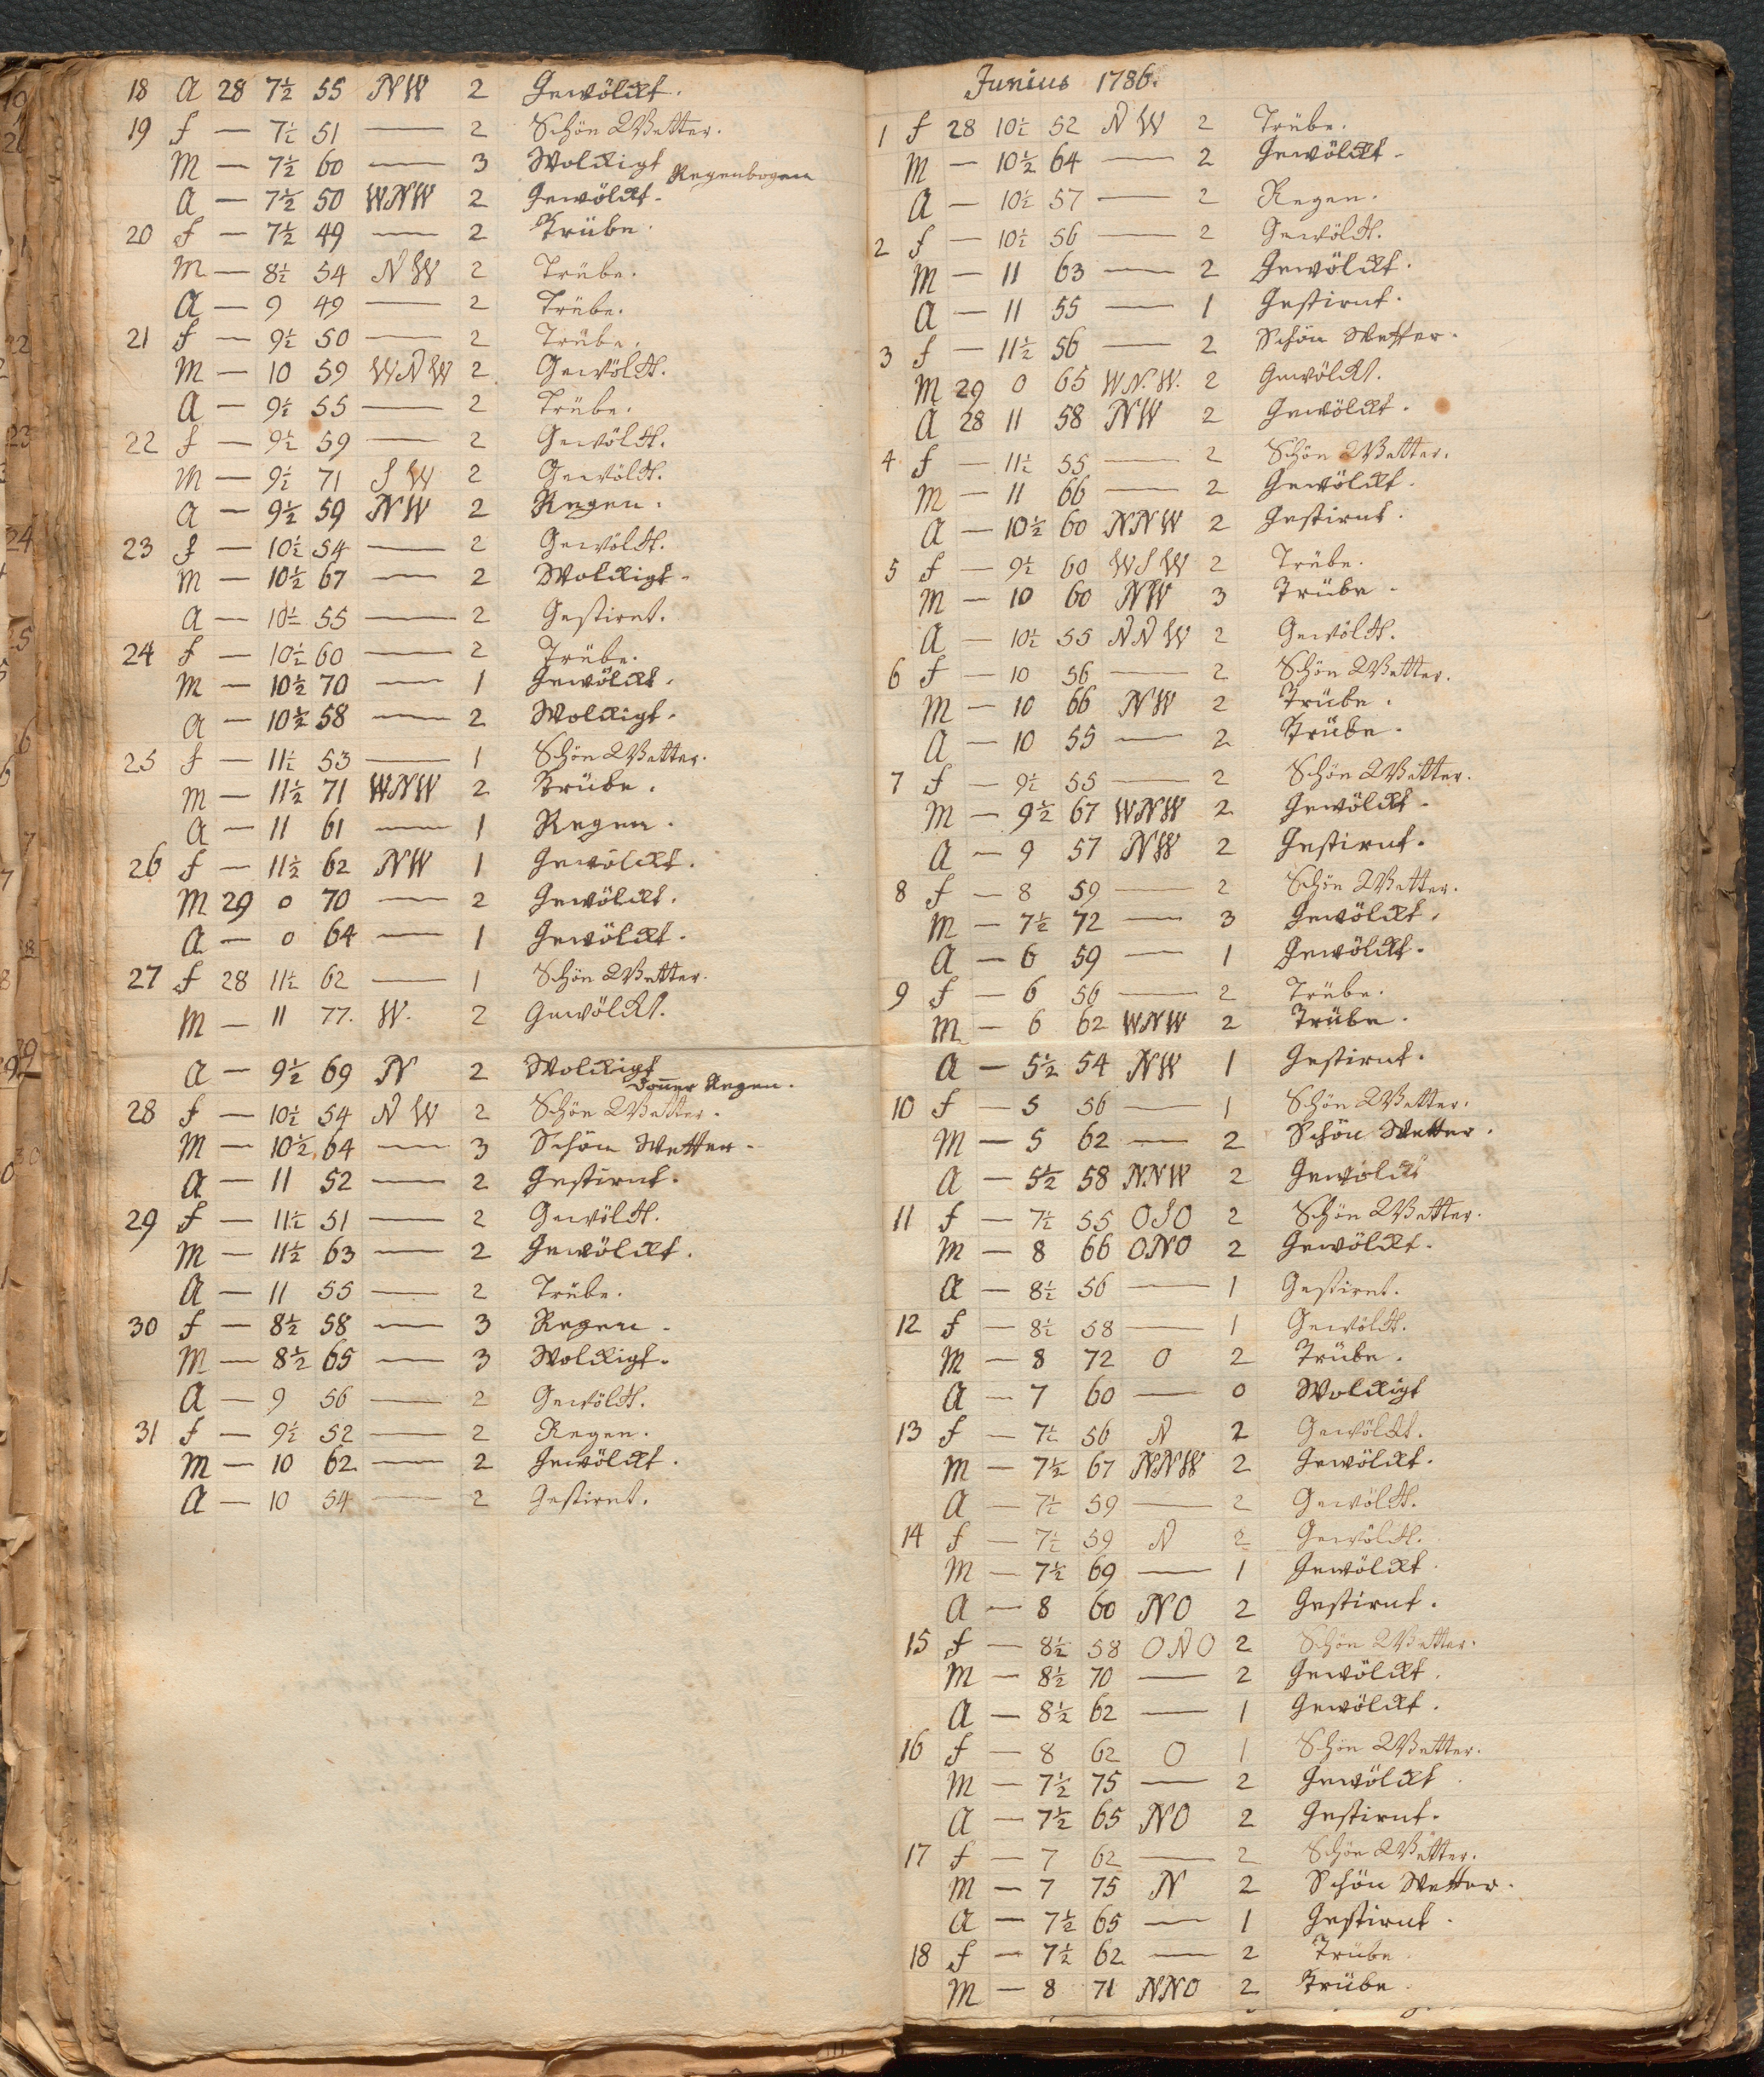 18 A 28 7½ 55 NW 2 Gewölckt.
19 f — 7½ 51 — 2 Schön Wetter.
M — 7½ 60 — 3 Wolckigt Regenbogen
A — 7½ 50 WNW 2 Gewölckt.
20 f — 7½ 49 — 2 Trübe.
M — 8½ 54 NW 2 Trübe.
A — 9 49 — 2 Trübe.
21 f — 9½ 50 — 2 Trübe.
M — 10 59 WNW 2 Gewölckt.
A — 9½ 55 — 2 Trübe.
22 f — 9½ 59 — 2 Gewölckt.
M — 9½ 71 SW 2 Gewölckt.
A — 9½ 59 NW 2 Regen.
23 f — 10½ 54 — 2 Gewölckt.
M — 10½ 67 — 2 Wolckigt.
A — 10½ 55 — 2 Gestirnt.
24 f — 10½ 60 — 2 Trübe.
M — 10½ 70 — 1 Gewölckt.
A — 10½ 58 — 2 Wolckigt.
25 f — 11½ 53 — 1 Schön Wetter.
M — 11½ 71 WNW 2 Trübe.
A — 11 61 — 1 Regen.
26 f — 11½ 62 NW 1 Gewölckt.
M 29 0 70 — 2 Gewölckt.
A — 0 64 — 1 Gewölckt.
27 f 28 11½ 62 — 1 Schön Wetter.
M — 11 77. W. 2 Gewölckt.
A — 9½ 69 N 2 Wolckigt
Doñer Regen.
28 f — 10½ 54 NW 2 Schön Wetter.
M — 10½ 64 — 3 Schön Wetter.
A — 11 52 — 2 Gestirnt.
29 f — 11½ 51 — 2 Gewölckt.
M — 11½ 63 — 2 Gewölckt.
A — 11 55 — 2 Trübe.
30 f — 8½ 58 — 3 Regen.
M — 8½ 65 — 3 Wolckigt.
A — 9 56 — 2 Gewölckt.
31 f — 9½ 52 — 2 Regen.
M — 10 62 — 2 Gewölckt.
A — 10 54 — 2 Gestirnt.
Junius 1786.
1 f 28 10½ 52 NW 2 Trübe.
M — 10½ 64 — 2 Gewölckt.
A — 10½ 57 — 2 Regen.
2 f — 10½ 56 — 2 Gewölckt.
M — 11 63 — 2 Gewölckt.
A — 11 55 — 1 Gestirnt.
3 f — 11½ 56 — 2 Schön Wetter.
M 29 0 65 WN.W. 2 Gewölckt.
A 28 11 58 NW 2 Gewölckt.
4 f — 11½ 55 — 2 Schön Wetter.
M — 11 66 — 2 Gewölckt.
A — 10½ 60 NNW 2 Gestirnt.
5 f — 9½ 60 WSW 2 Trübe.
M — 10 60 NW 3 Trübe.
A — 10½ 55 NNW 2 Gewölckt.
6 f — 10 56 — 2 Schön Wetter.
M — 10 66 NW 2 Trübe.
A — 10 55 — 2 Trübe.
7 f — 9½ 55 — 2 Schön Wetter.
M — 9½ 67 WNW 2 Gewölckt.
A — 9 57 NW 2 Gestirnt.
8 f — 8 59 — 2 Schön Wetter.
M — 7½ 72 — 3 Gewölckt.
A — 6 59 — 1 Gewölckt.
9 f — 6 56 — 2 Trübe.
M — 6 62 WNW 2 Trübe.
A — 5½ 54 NW 1 Gestirnt.
10 f — 5 56 — 1 Schön Wetter.
M — 5 62 — 2 Schön Wetter.
A — 5½ 58 NNW 2 Gewölckt
11 f — 7½ 55 OSO 2 Schön Wetter.
M — 8 66 ONO 2 Gewölckt.
A — 8½ 56 — 1 Gestirnt.
12 f — 8½ 58 — 1 Gewölckt.
M — 8 72 O 2 Trübe.
A — 7 60 — 0 Wolckigt
13 f — 7½ 56 N 2 Gewölckt.
M — 7½ 67 NNW 2 Gewölckt.
A — 7½ 59 — 2 Gewölckt.
14 f — 7½ 59 N 2 Gewölckt.
M — 7½ 69 — 1 Gewölckt.
A — 8 60 NO 2 Gestirnt.
15 f — 8½ 58 ONO 2 Schön Wetter.
M — 8½ 70 — 2 Gewölckt.
A — 8½ 62 — 1 Gewölckt.
16 f — 8 62 O 1 Schön Wetter.
M — 7½ 75 — 2 Gewölckt
A — 7½ 65 NO 2 Gestirnt.
17 f — 7 62 — 2 Schön Wetter.
M — 7 75 N 2 Schön Wetter.
A — 7½ 65 — 1 Gestirnt.
18 f — 7½ 62 — 2 Trübe.
M — 8 71 NNO 2 Trübe.